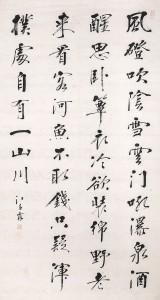 風磴吹陰雪雲門吼瀑泉酒
醒思臥簟衣冷欲裝綿野老
來看客河魚不取錢只疑淳
樸處自有一山川